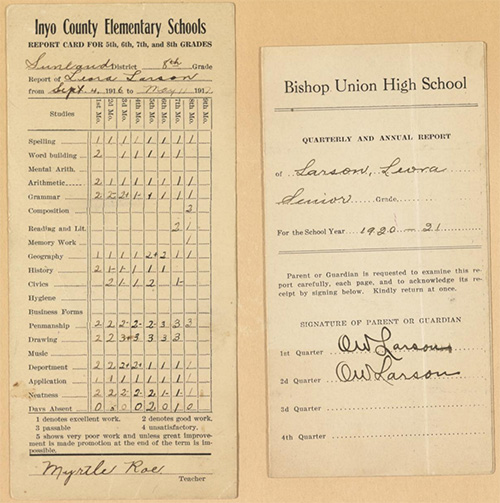 Inyo County Elementary Schools
REPORT CARD FOR 5th, 6th, 7th, and 8th GRADES
Sunland District 8th Grade
Report of Leora Larson
from Sept. 4, 1916 to May 11 191
Studies 1st Mo. 2d Mo. 3d Mo. 4th Mo. 5th Mo. 6th Mo. 7th Mo. 8th Mo. 9th Mo.
Spelling 1 1 1 1 1 1 1 1
Word building 2 1 1 1 1 1
Mental Arith.
Arithmetic 2 1 1 1 1 1 1 1
Grammar 2 2- 2+ 1- 1 1 1
Composition 3
Reading and Lit. 2 1
Memory Work 1
Geography 1 1 1 1 2+ 2 1 1
History 2 1- 1 1 1
Civics 2 1 1 2 1-
Hygiene
Business Forms
Penmanship 2 2 2- 2- 2- 3 3 3
Drawing 2 2 3+ 3 3 3 3
Music
Department 2 2 2+ 2+ 1 1 1 1
Application 1 1 1 1 1 1 1 1
Neatness 2 2 2 2- 2 1- 1- 1
Days Absent 0 0 0 2 0 1 0
1 denotes excellent work. 2 denotes good work.
3 passable 4 unsatisfactory.
5 shows very poor work and unless great improve-
ment is made promotion at the end of the term is im-
possible.
Myrtle Roe
Teacher
Bishop Union High School
QUARTERLY AND ANNUAL REPORT
of Larson, Leora
Senior Grade
For the School Year 1920-21
Parent or Guardian is requested to examine this re-
port carefully, each page, and to acknowledge its re-
ceipt by signing below. Kindly return at once.
SIGNATURE OF PARENT OR GUARDIAN
1st Quarter OW Larson
2d Quarter OW Larson
3d Quarter
4th Quarter